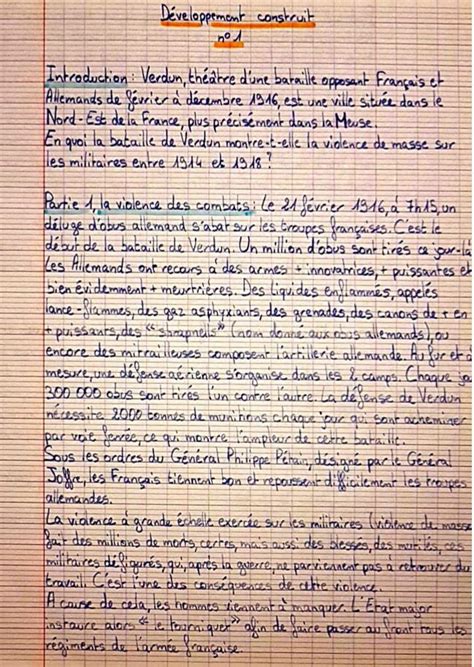 Développement construit
n°1
Introduction : Verdun, théâtre d'une bataille opposant Français et
Allemands de février à décembre 1916, est une ville située dans le
Nord-Est de la France, plus précisément dans la Meuse.
En quoi la bataille de Verdun montre-t-elle la violence de masse sur
les militaires entre 1914 et 1918 ?
Partie 1, la violence des combats : Le 21 février 1916, à 7h15, un
déluge d'obus allemand s'abat sur les troupes françaises. C'est le
début de la bataille de Verdun. Un million d'obus sont tirés ce jour-là
Les Allemands ont recours à des armes + innovatrices, + puissantes et
bien évidemment + meurtrières. Des liquides enflammés, appelés
lance-flammes, des gaz asphyxiants, des grenades, des canons de + en
+ puissants, des "shrapnells" (nom donné aux obus allemands), ou
encore des mitrailleuses composent l'artillerie allemande. Au fur et à
mesure, une défense aérienne s'organise dans les 2 camps. Chaque jour
300 000 obus sont tirés l'un contre l'autre. La défense de Verdun
nécessite 2000 tonnes de munitions chaque jour qui sont acheminer
par voie ferrée, ce qui montre l'ampleur de cette bataille.
Sous les ordres du Général Philippe Pétain, désigné par le Général
Joffre, les Français tiennent bon et repoussent difficilement les troupes
allemandes.
La violence à grande échelle exercée sur les militaires (violence de masse
fait des millions de morts, certes, mais aussi des blessés, des mutilés, ces
militaires défigurés, qui, après la guerre, ne parviennent pas à retrouver du
travail. C'est l'une des conséquences de cette violence.
A cause de cela, les hommes viennent à manquer. L'Etat major
instaure alors "le tourniquet" afin de faire passer au front tous les
régiments de l'armée française.